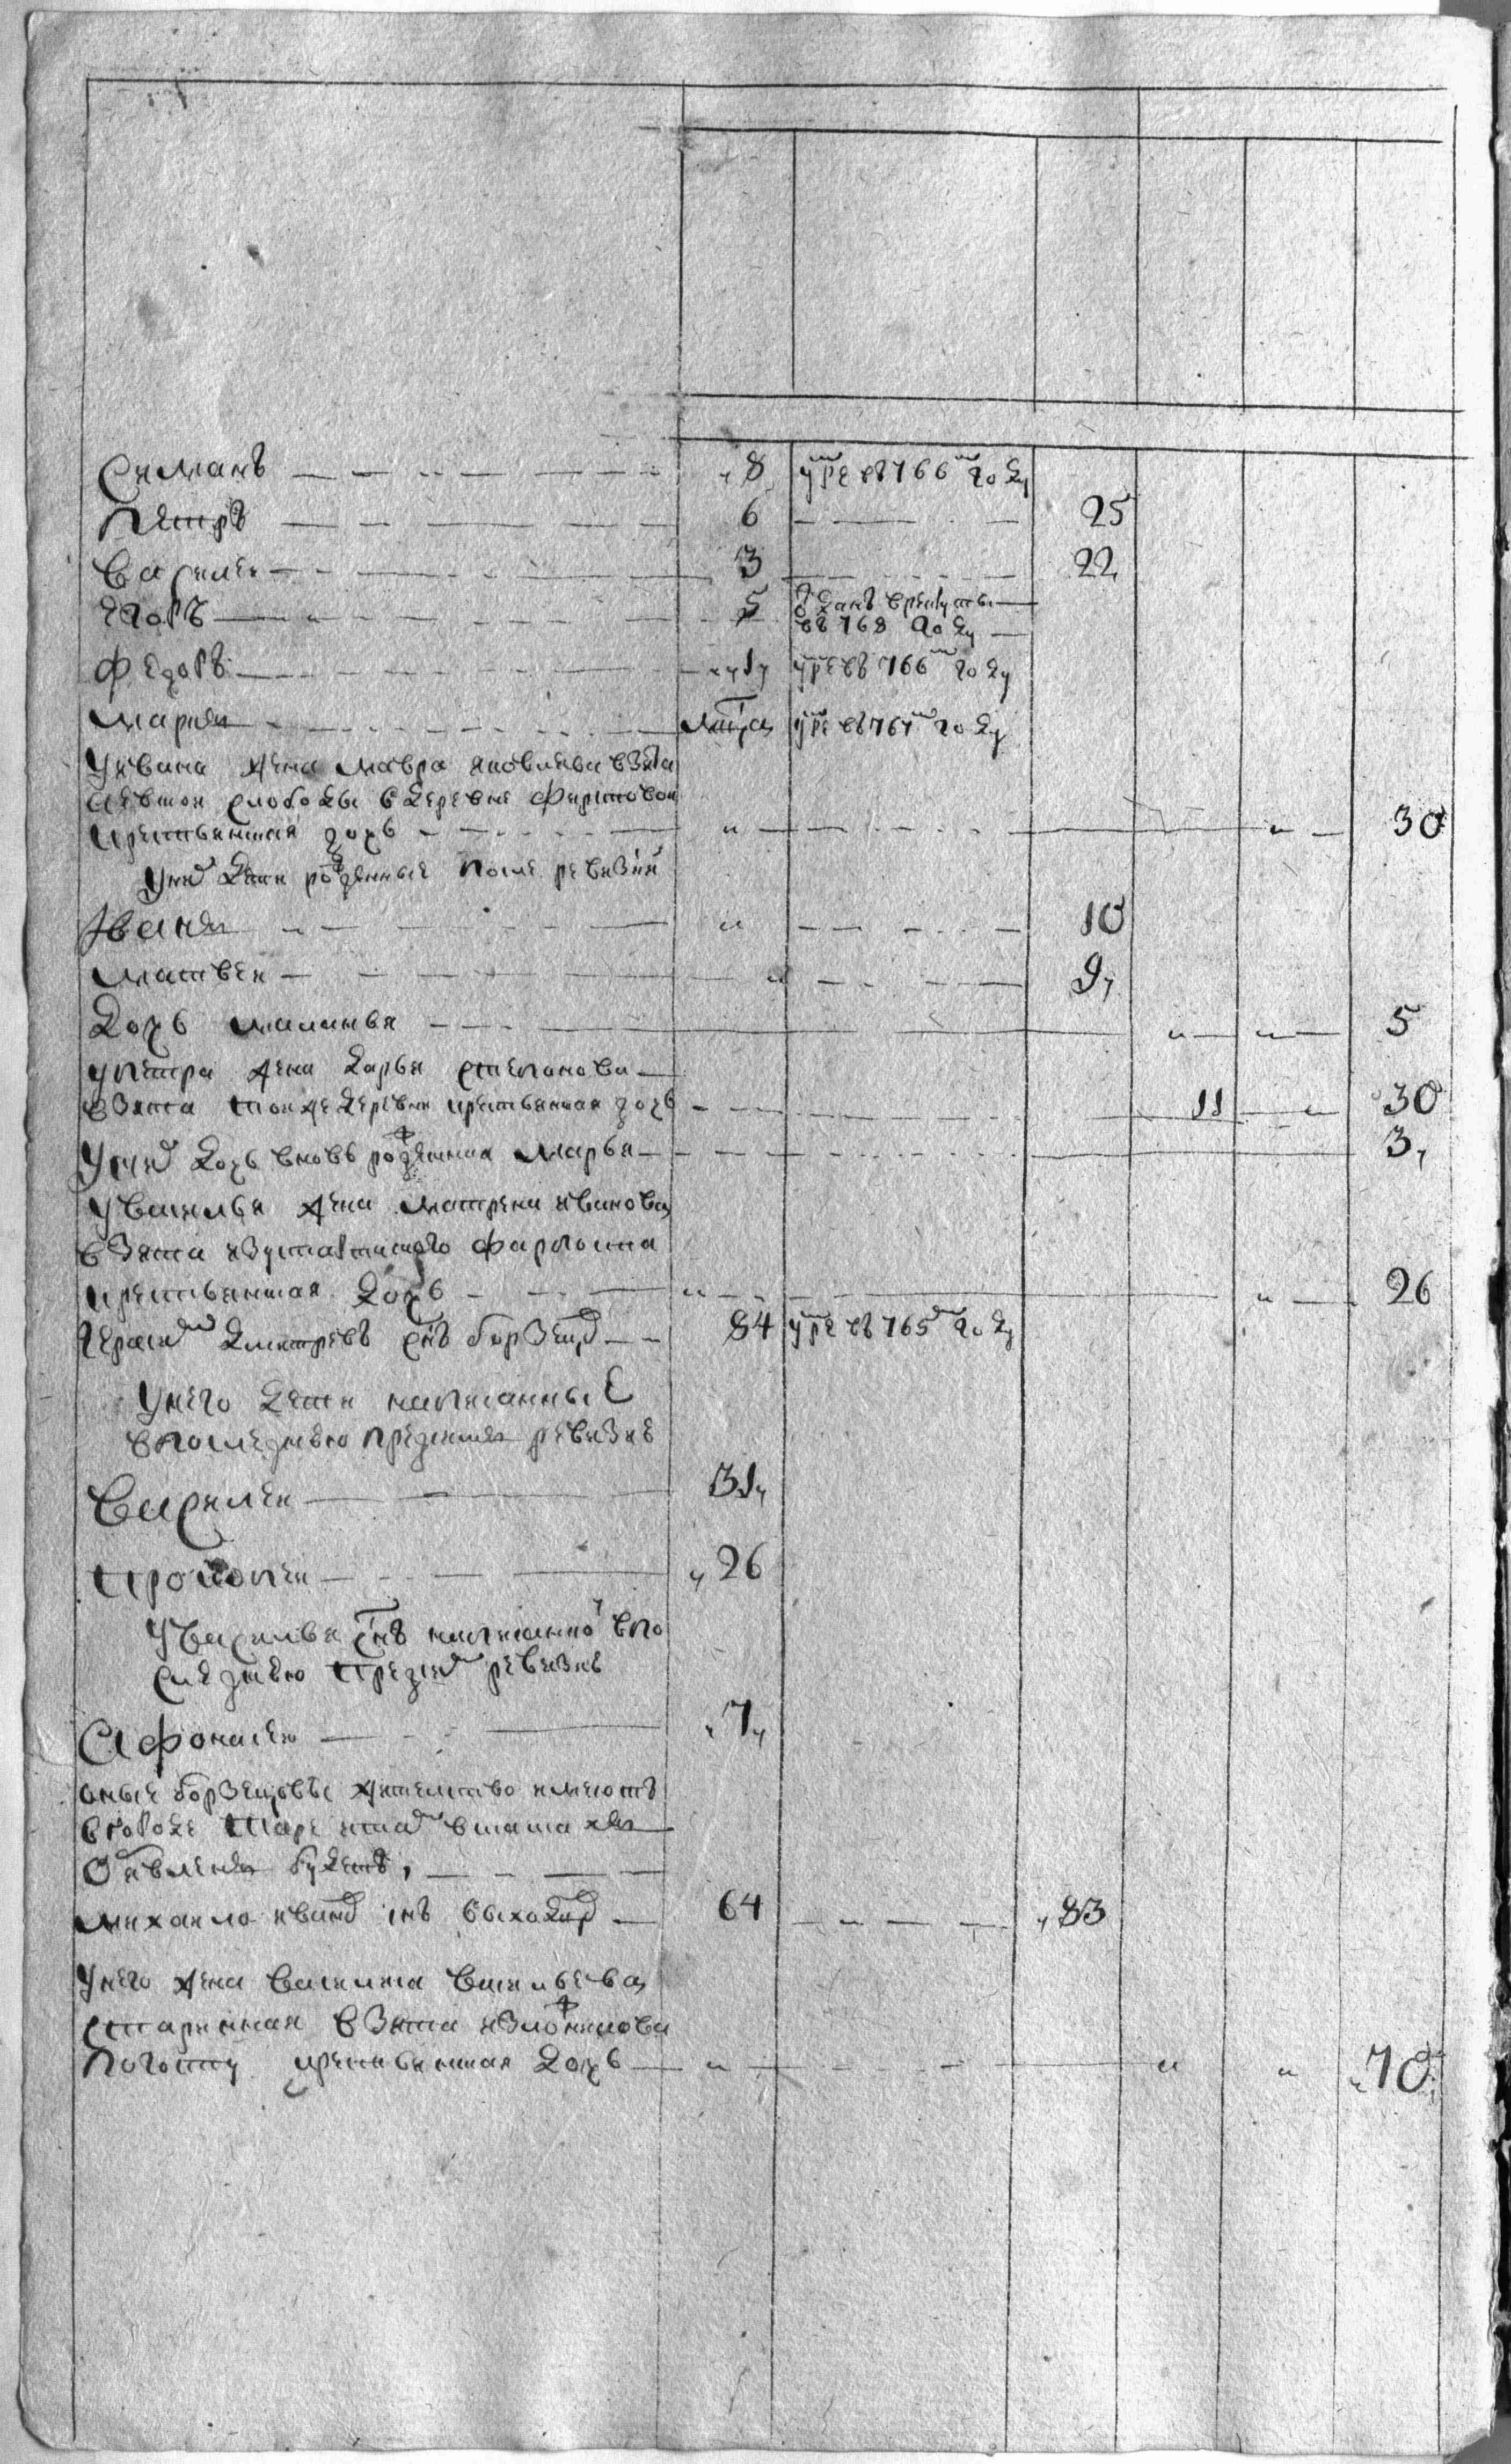 Симанъ 8 умре въ 766 году
Петръ 6 25
Василеи 3 22
Егоръ 5 отданъ врекруты
въ 768 году
Федоръ 1 умре въ 766 году
Марки умре въ 767 году
Уивана жена Мавра яковлева взята
слободы в деревне
крестьянская дочь 30
Уних дети рожденные после ревизии
Иванъ 10
Матвеи 9
Дочь маланья 5
упетра жена дарья степанова
взята тоиже деревни крестьянская дочь 11 30
Уних дочь вновь рожденная марья 3
Увасилья жена матрена иванова
взята фарпоста
крестьянская дочь 26
Герасим дмитревъ снъ борзенцов 84 умре въ 765 году
Унего дети написанные
впоследнею пред сим ревизию
Василеи 31
Прокопеи 26
Увасилья снъ написанной впо
следнею пред сим ревизию
Афонасеи 7
оные борзенцовы жительство имеютъ
вгороде Таре
объявлены будетъ,
михаило иванов снъ выходцов 64 83
Унего жена василиса васильева
старинная взята
погосту крестьянская дочь 70